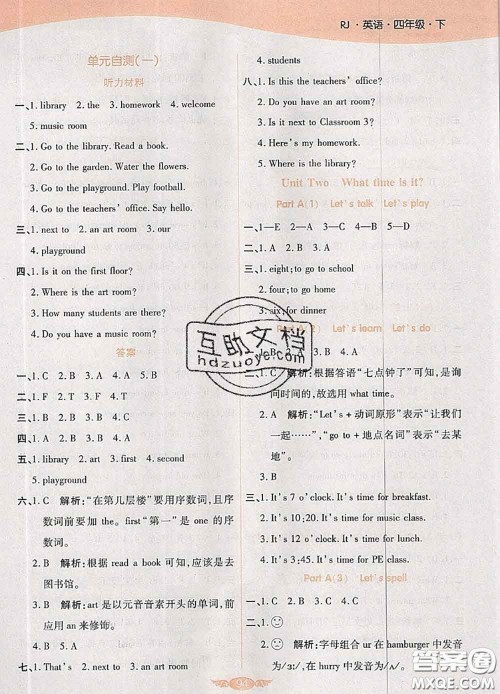 RJ·英语·四年级·下
单元自测(一)
听力材料
一、1. library 2. the 3. homework 4. welcome
5. music room
二、1. Go to the library. Read a book.
2. Go to the garden. Water the flowers.
3. Go to the playground. Play football.
4. Go to the teachers' office. Say hello.
三、1. next to 2. an art room 3. our
4. playground
四、1. Is it on the first floor?
2. Where is the art room?
3. How many students are there?
4. Do you have a music room?
答案
一、1. C 2. B 3. A 4. A 5. B
二、1. C 2. B 3. D 4. A
三、1. B 2. B 3. A 4. B
四、1. A 2. B 3. A 4. B
五、1. library 2. art 3. first 4. second
5. playground
六、1. C 解析:“在第几层楼”要用序数词,且序
数词前要加 the。first“第一”是 one 的序
数词。
2. B 解析:根据 read a book 可知,应该是去
图书馆。
3. B 解析:art 是以元音音素开头的单词,前
应用 an来修饰。
4. B 5. A
七、1. That's 2. next to 3. art room
4. students
八、1. Is this the teachers' office?
2. Do you have an art room?
3. Is it next to Classroom 3?
4. Here's my homework.
5. Where is the library?
Unit Two What time is it?
Part A(1) Let's talk Let's play
一、1—E 2—D 3—A 4—B 5—C
二、1. A 2. B 3. A
三、1. eight;to go to school
2. four;to go home
3. six;for dinner
Let's learn Let's do
B 3. A
解析:根据答语“七点钟了”可知,是询
问时间的,故选用 what time.
2. A 解析:“Let's + 动词原形”表示“让我们
一起……”,“go to + 地点名词”表示“去某
地”。
三、1. It's 7 o'clock. It's time for breakfast.
2. It's 8:10. It's time for music class.
3. It's 12 o'clock. It's time for lunch.
4. It's 3:45. It's time for PE class.
Part A(3) Let's spell
一、1. A 2. C 3. B 4. C
二、1. 2. 解析:字母组合 ur 在 hamburger 中发音
为/ɜː/,在 hurry 中发音为/ʌ/。
互助文档
hdzuoye.com
答案圈
MXQE.COM